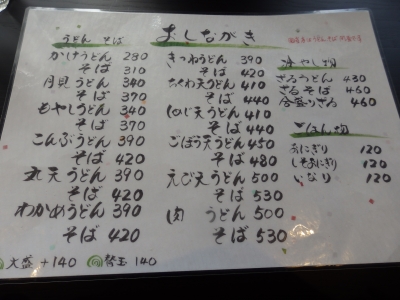 おしながき
うどん そば
かけうどん 280
そば 310
月見うどん 340
そば 370
もやしうどん 340
そば 370
こんぶうどん 390
そば 420
丸天うどん 390
そば 420
わかめうどん 390
そば 420
きつねうどん 390
そば 420
ちくわ天うどん 410
そば 440
めじ天うどん 410
そば 440
ごぼう天うどん 450
そば 480
えび天うどん 500
そば 530
肉うどん 500
そば 530
冷やし物
ざるうどん 430
ざるそば 460
合盛りざる 460
ごはん物
おにぎり 120
しそおにぎり 120
いなり 120
大盛 +140
替玉 140